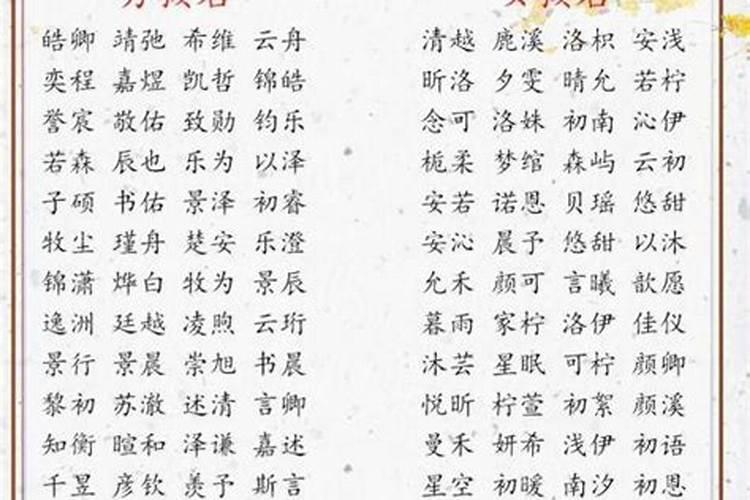 皓卿 靖弛 希维 云舟
奕程 嘉煜 凯哲 锦皓
誉宸 敬佑 致勋 钧乐
若森 辰也 乐为 以泽
子硕 书佑 景泽 初睿
牧尘 瑾舟 楚安 乐澄
锦潇 烨白 牧为 景辰
逸洲 廷越 凌煦 云珩
景行 景晨 崇旭 书晨
黎初 苏澈 述清 言卿
知衡 暄和 泽谦 嘉述
千昱 彦钦 羡予 斯言
清越 鹿溪 洛枳 安浅
昕洛 夕雯 晴允 若柠
念可 洛姝 初南 沁伊
栀柔 梦绾 森屿 云初
安若 诺恩 贝瑶 悠甜
安沁 晨予 悠甜 以沐
允禾 颜可 言曦 歆愿
暮雨 家柠 洛伊 佳仪
沐芸 星眠 可柠 颜卿
悦昕 柠萱 初絮 颜溪
曼禾 妍希 浅伊 初语
星空 初暖 南汐 初恩